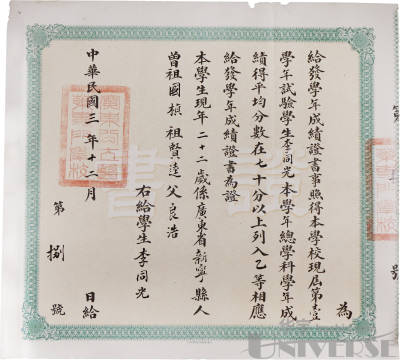 為
給發學年成績證書事照得本學校現屆第壹
學年試驗學生李同光本學年總學科學年成
績得平均分數在七十分以上列入乙等相應
給發學年成績證書為證
本學生現年二十二歲係廣東省新寧縣人
曾祖國楨 祖賢遠 父良浩
右給學生李同光
中華民國三年十二月 日給
第 捌 號
證書
UNIVERSE